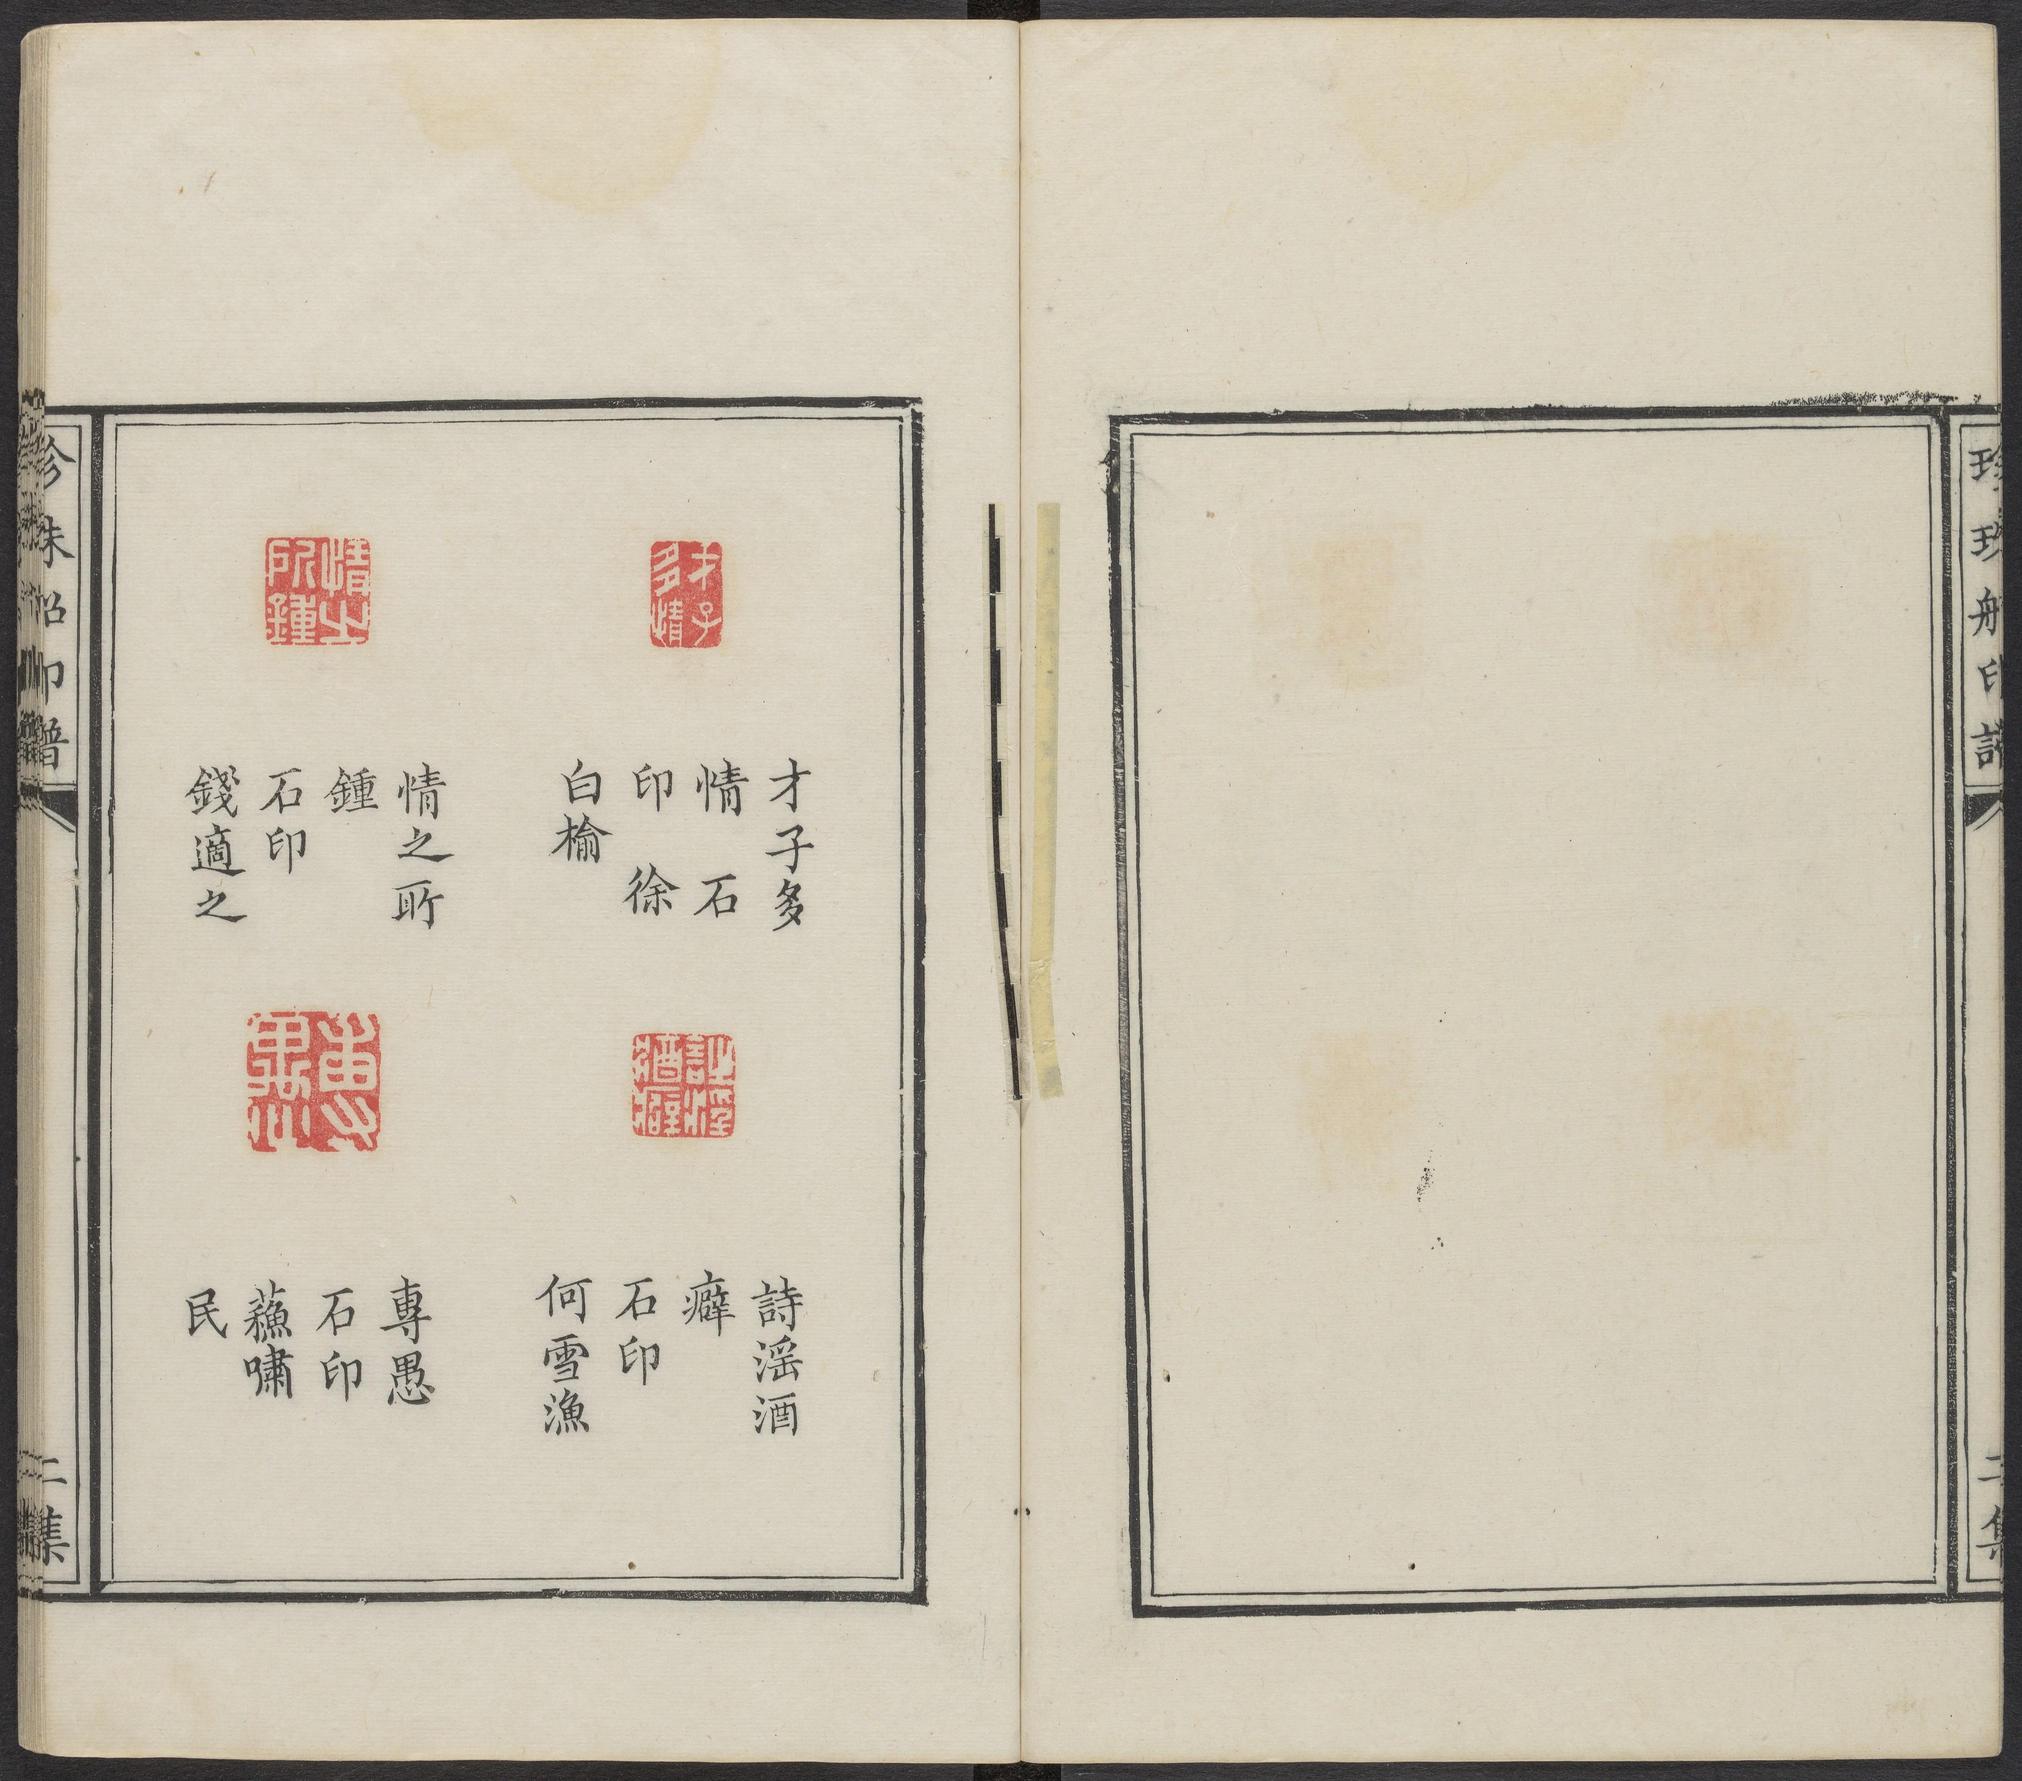 珍珠船印譜
二集
才子多情
才子多
情 石
印 徐
白榆
詩淫酒癖
詩淫酒
癖
石印
何雪漁
情之所鍾
情之所
鍾
石印
錢適之
專愚
專愚
石印
蘓嘯
民
珍珠船印譜
二集